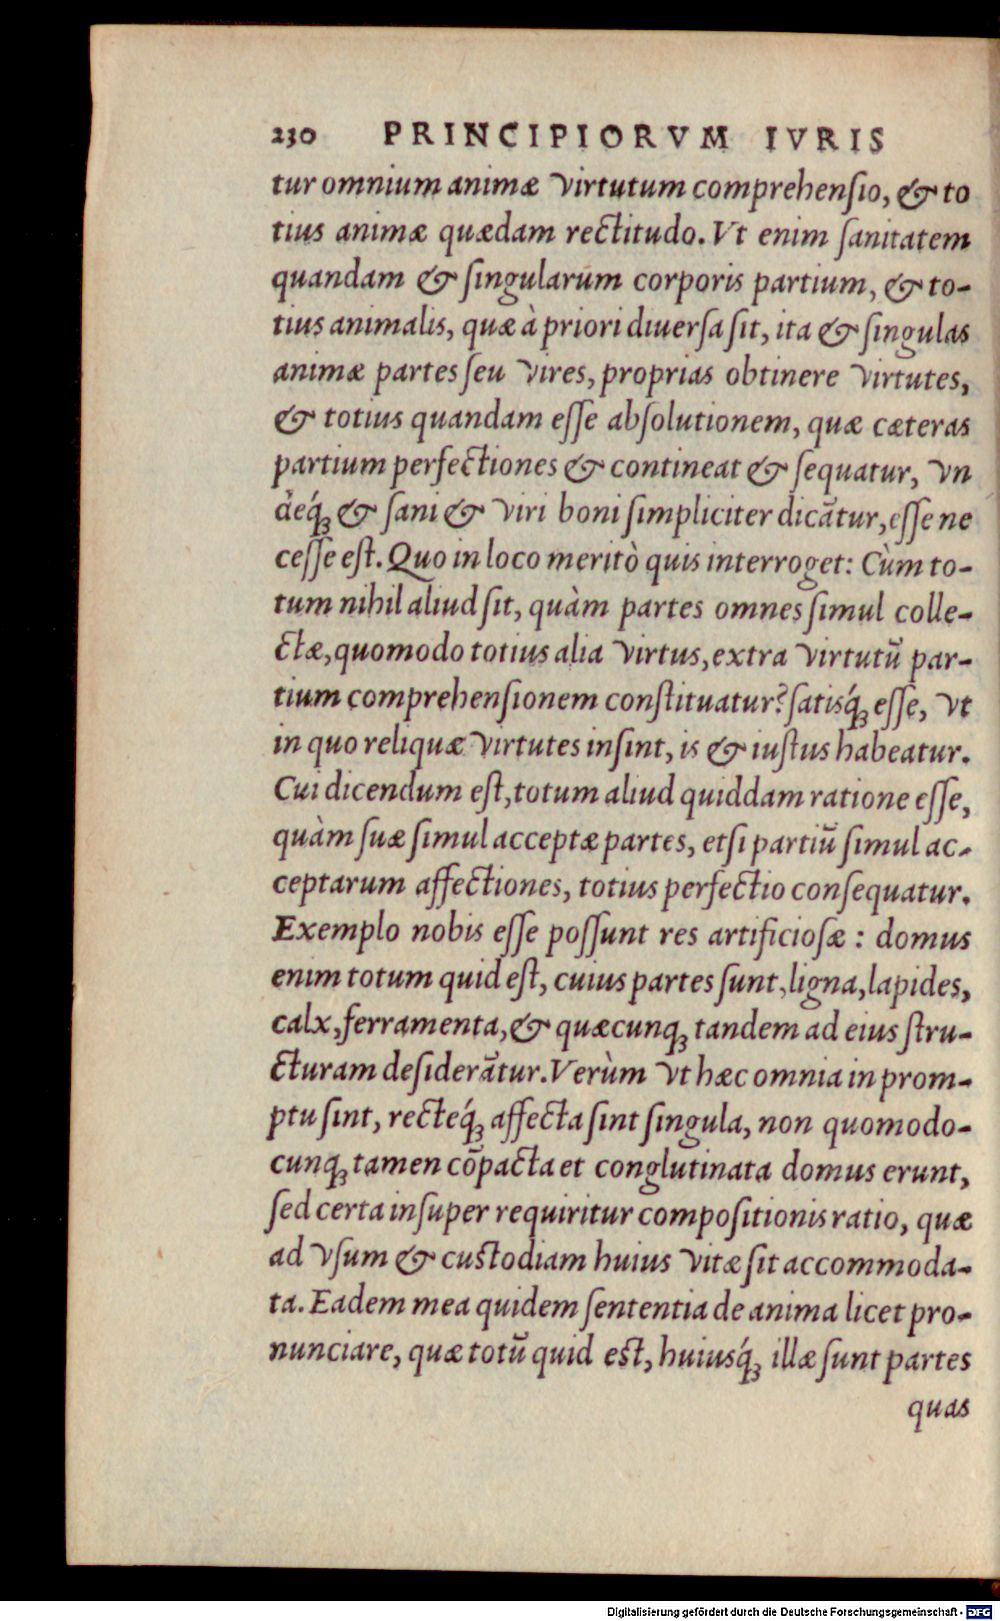 230 PRINCIPIORVM IVRIS
tur omnium animæ virtutum comprehenſio, & to
tius animæ quædam rectitudo. Vt enim ſanitatem
quandam & ſingularum corporis partium, & to-
tius animalis, quæ à priori diuerſa ſit, ita & ſingulas
animæ partes ſeu vires, proprias obtinere virtutes,
& totius quandam eſſe abſolutionem, quæ cæteras
partium perfectiones & contineat & ſequatur, vn
deq́; & ſani & viri boni ſimpliciter dicãtur, eſſe ne
ceſſe eſt. Quo in loco meritò quis interroget: Cùm to-
tum nihil aliud ſit, quàm partes omnes ſimul colle-
ctæ, quomodo totius alia virtus, extra virtutũ par-
tium comprehenſionem conſtituatur? ſatisq́; eſſe, vt
in quo reliquæ virtutes inſint, is & iuſtus habeatur.
Cui dicendum eſt, totum aliud quiddam ratione eſſe,
quàm ſuæ ſimul acceptæ partes, etſi partiũ ſimul ac-
ceptarum affectiones, totius perfectio conſequatur.
Exemplo nobis eſſe poſſunt res artificioſæ : domus
enim totum quid eſt, cuius partes ſunt, ligna, lapides,
calx, ferramenta, & quæcunq; tandem ad eius ſtru-
cturam deſiderãtur. Verùm vt hæc omnia in prom-
ptu ſint, recteq́; affecta ſint ſingula, non quomodo-
cunq; tamen cõpacta et conglutinata domus erunt,
ſed certa inſuper requiritur compoſitionis ratio, quæ
ad vſum & cuſtodiam huius vitæ ſit accommoda-
ta. Eadem mea quidem ſententia de anima licet pro-
nunciare, quæ totũ quid eſt, huiusq́; illæ ſunt partes
quas
Digitalisierung gefördert durch die Deutsche Forschungsgemeinschaft - DFG